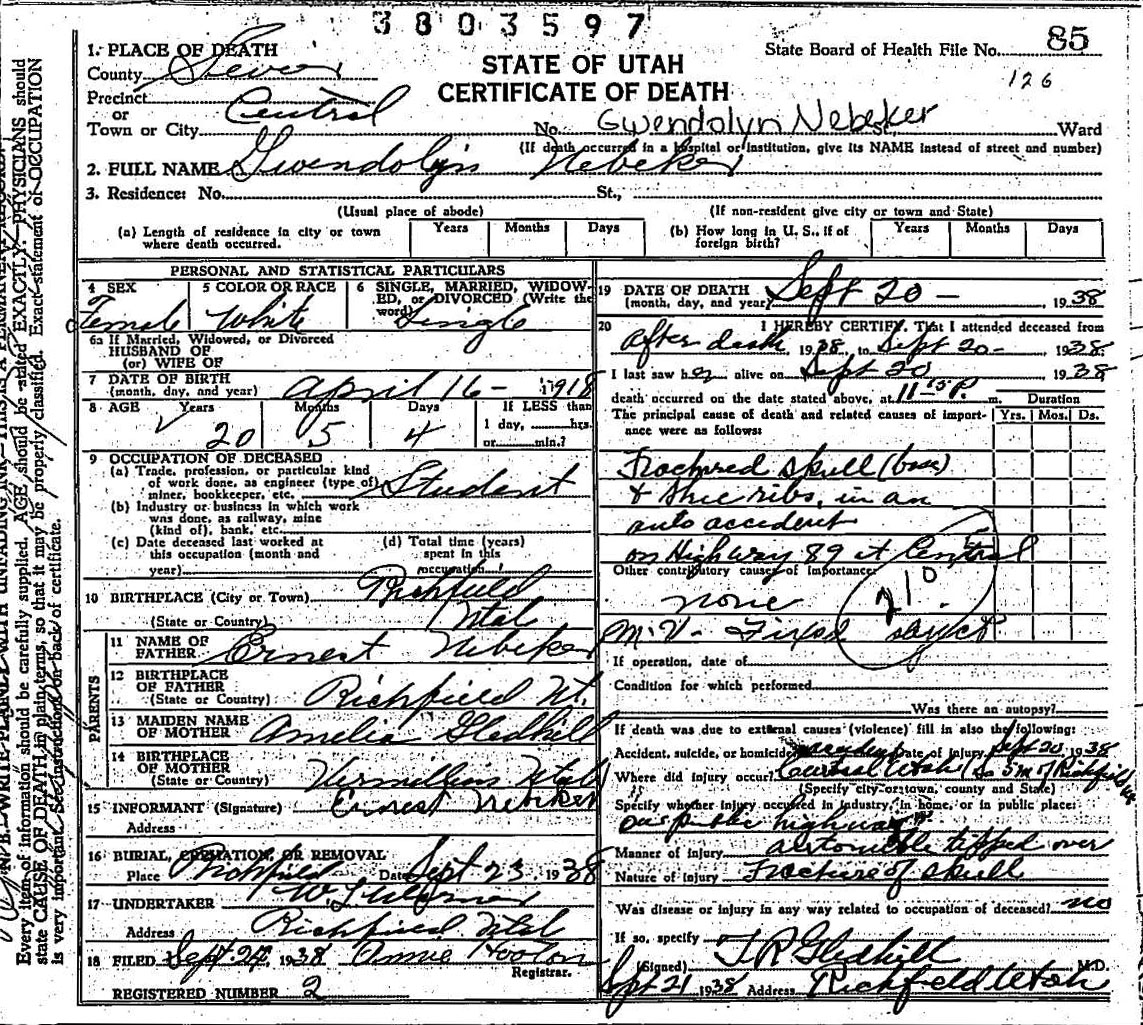 3803597
State Board of Health File No. 85
126
STATE OF UTAH
CERTIFICATE OF DEATH
1. PLACE OF DEATH
County Sevier
Precinct
or
Town or City Central No. Gwendolyn Nebeker St., Ward
(If death occurred in a hospital or institution, give its NAME instead of street and number)
2. FULL NAME Gwendolyn Nebeker
3. Residence: No. St.,
(Usual place of abode) (If non-resident give city or town and State)
(a) Length of residence in city or town where death occurred. Years Months Days
(b) How long in U. S., if of foreign birth? Years Months Days
PERSONAL AND STATISTICAL PARTICULARS
4 SEX Female
5 COLOR OR RACE White
6 SINGLE, MARRIED, WIDOWED, or DIVORCED (Write the word) Single
6a If Married, Widowed, or Divorced
HUSBAND OF
(or) WIFE OF
7 DATE OF BIRTH
(month, day, and year) April 16 - 1918
8 AGE Years Months Days If LESS than
20 5 4 1 day, hrs.
or min.?
9 OCCUPATION OF DECEASED
(a) Trade, profession, or particular kind
of work done, as engineer (type of)
miner, bookkeeper, etc. Student
(b) Industry or business in which work
was done, as railway, mine
(kind of), bank, etc.
(c) Date deceased last worked at
this occupation (month and
year)
(d) Total time (years)
spent in this
occupation
10 BIRTHPLACE (City or Town) Richfield
(State or Country) Utah
PARENTS
11 NAME OF
FATHER Ernest Nebeker
12 BIRTHPLACE
OF FATHER
(State or Country) Richfield Ut.
13 MAIDEN NAME
OF MOTHER Amelia Gledhill
14 BIRTHPLACE
OF MOTHER
(State or Country) Vermillion Utah
15 INFORMANT (Signature) Ernest Nebeker
Address
16 BURIAL, CREMATION, OR REMOVAL
Place Richfield Date Sept 23, 1938
17 UNDERTAKER
Address Richfield Utah
18 FILED Sept. 24, 1938 Annie Hooton
Registrar.
REGISTERED NUMBER 2
19 DATE OF DEATH
(month, day, and year) Sept 20 - 1938
20 I HEREBY CERTIFY, That I attended deceased from
After death, 1938, to Sept 20 - 1938
I last saw her alive on Sept 20 1938
death occurred on the date stated above, at 11 15 P. m. Duration
The principal cause of death and related causes of importance were as follows: Yrs. Mos. Ds.
Fractured skull (base)
& three ribs, in an
auto accident
on Highway 89 at Central
Other contributory causes of importance:
none
210
M.V - Fixed object
If operation, date of
Condition for which performed
Was there an autopsy?
If death was due to external causes (violence) fill in also the following:
Accident, suicide, or homicide Date of injury Sept 20 1938
Where did injury occur? Central Utah (So 5 m of Richfield
(Specify city or town, county and State)
Specify whether injury occurred in industry, in home, or in public place:
On public highway
Manner of injury automobile tipped over
Nature of injury Fracture of skull
Was disease or injury in any way related to occupation of deceased? no
If so, specify
(Signed) T R Gledhill M.D.
Sept 21 1938 Address Richfield Utah
Every item of information should be carefully supplied. AGE should be stated EXACTLY. PHYSICIANS should
state CAUSE OF DEATH in plain terms, so that it may be properly classified. Exact statement of OCCUPATION
is very important. See instructions on back of certificate.